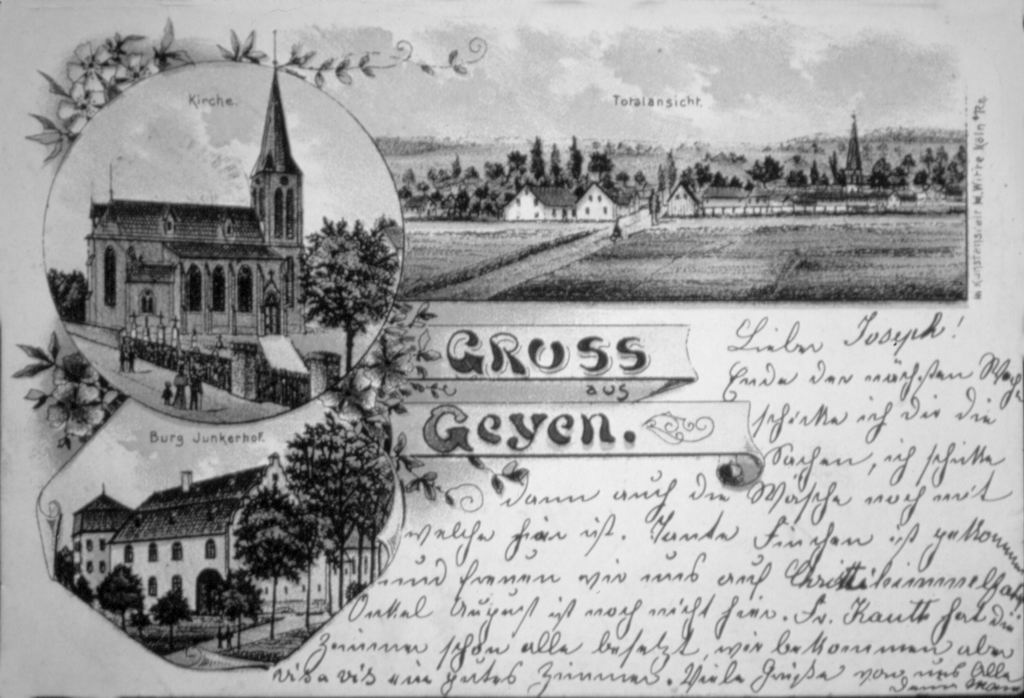 Kirche.
Totalansicht.
Burg Junkerhof.
GRUSS
aus
Geyen.
Lieber Joseph!
Ende der nächsten Woche
schicke ich dir die
Sachen, ich schicke
dann auch die Wäsche noch mit
welche hier ist. Tante Finchen ist gekommen
und freuen wir uns auf Christihimmelfahrt
Onkel August ist noch nicht hier. Fr. Kauth hat die
Zimmer schon alle besetzt, wir bekommen aber
vis a vis ein gutes Zimmer. Viele Grüße von uns Alle